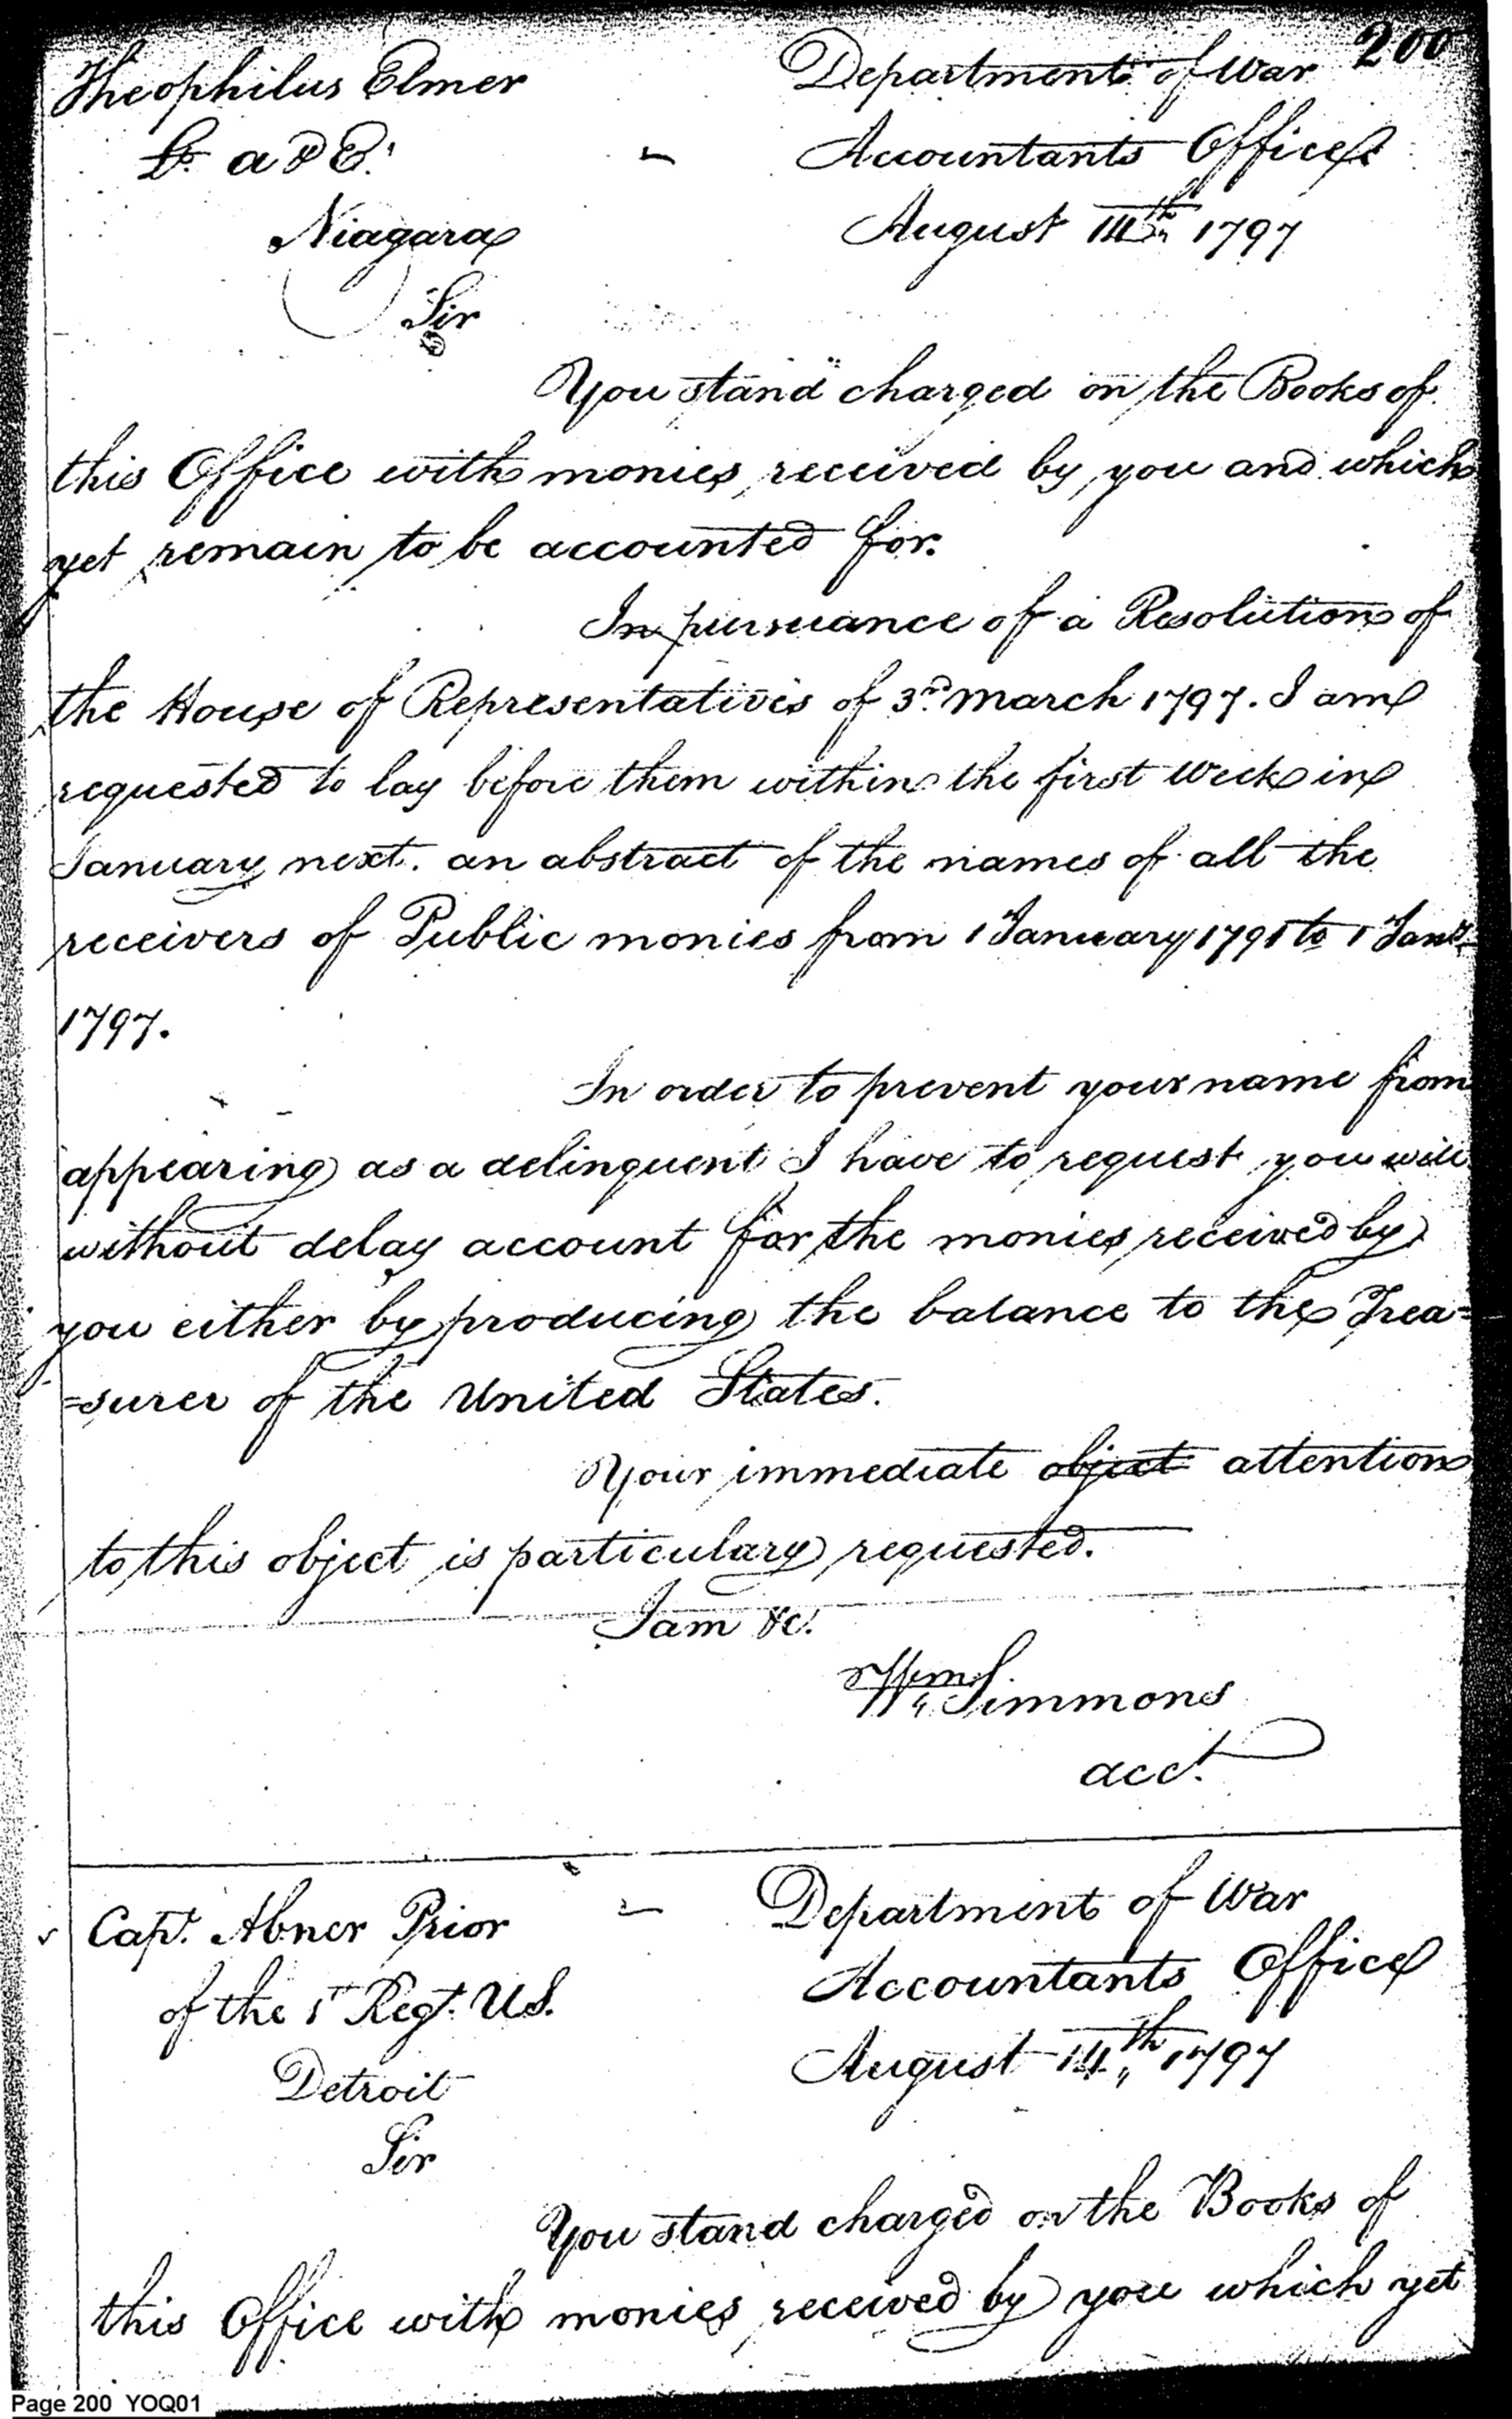 200
Theophilus Elmer
Department of War
Lt. a & E.
Accountants Office
Niagara
August 14th 1797
Sir
You stand charged on the Books of
this Office with monies received by you and which
yet remain to be accounted for.
In pursuance of a Resolution of
the House of Representatives of 3rd March 1797. I am
requested to lay before them within the first week in
January next. an abstract of the names of all the
receivers of Public monies from 1 January 1791 to 1 Jany.
1797.
In order to prevent your name from
appearing as a delinquent I have to request you will
without delay account for the monies received by
you either by producing the balance to the Trea=
=surer of the United States.
Your immediate object attention
to this object is particulary requested.
I am &c.
Wm Simmons
acct.
Capt. Abner Prior
Department of War
of the 1st Regt. US.
Accountants Office
Detroit
August 14th 1797
Sir
You stand charged on the Books of
this Office with monies received by you which yet
Page 200 YOQ01